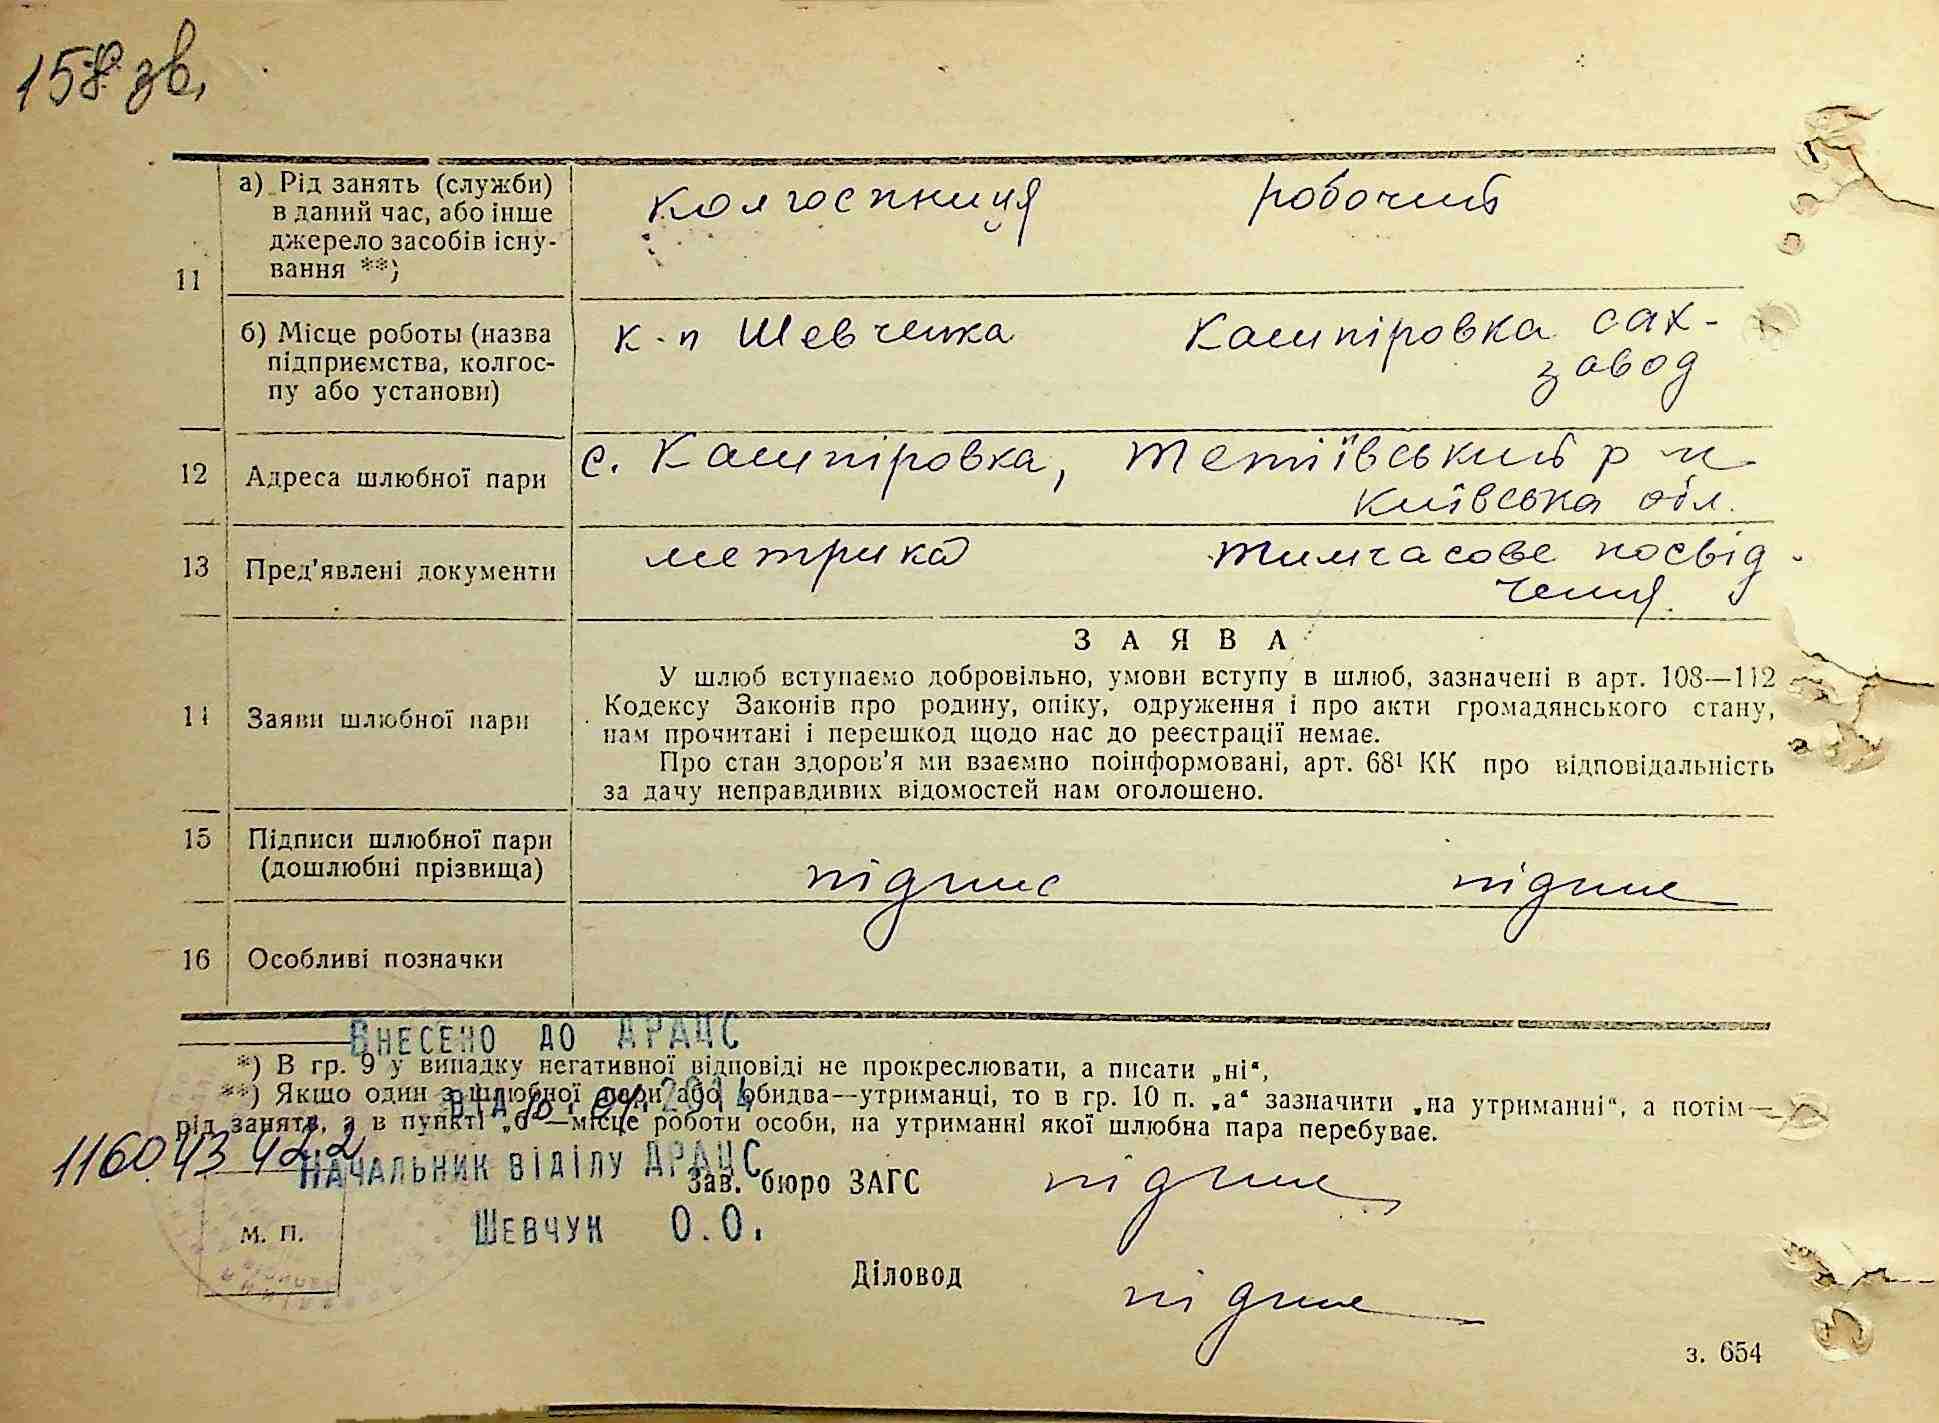 158 зв.
а) Рід занять (служби) в даний час, або інше джерело засобів існування **)
колгоспниця робочий
11
б) Місце роботы (назва підприємства, колгоспу або установи)
к-п Шевченка Кашпіровка сах-
завод
12 Адреса шлюбної пари с. Кашпіровка, Тетіївський р-н
Київська обл.
13 Пред'явлені документи метрика тимчасове посвід-
чення.
З А Я В А
У шлюб вступаємо добровільно, умови вступу в шлюб, зазначені в арт. 108—112
14 Заяви шлюбної пари Кодексу Законів про родину, опіку, одруження і про акти громадянського стану,
нам прочитані і перешкод щодо нас до реєстрації немає.
Про стан здоров'я ми взаємно поінформовані, арт. 68¹ КК про відповідальність
за дачу неправдивих відомостей нам оголошено.
15 Підписи шлюбної пари
(дошлюбні прізвища) підпис підпис
16 Особливі позначки
Внесено до ДРАЦС
*) В гр. 9 у випадку негативної відповіді не прокреслювати, а писати „ні“,
**) Якщо один з шлюбної пари або обидва—утриманці, то в гр. 10 п. „а“ зазначити „на утриманні“, а потім—
від 10.04.2014
рід занять, а в пункті „б“—місце роботи особи, на утриманні якої шлюбна пара перебуває.
Начальник відділу ДРАЦС
Зав. бюро ЗАГС підпис
М. П.
Шевчук О.О.
Діловод підпис
з. 654